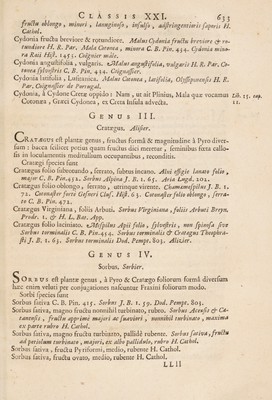 CLASSIS XXI. 633
fructu oblongo, minori, lanuginoso, insulso, adstringentisque saporis H.
Cathol.
Cydonia fructu breviore & rotundiore. Malus Cydonia fructu breviore & ro-
tundiore H. R. Par. Mala Cotonea, minora C. B. Pin. 434. Cydonia mino-
ra Raii Hist. 1453. Coignier mâle.
Cydonia angustifolia, vulgaris. H. R. Par. Co-
tonea sylvestris C. B. Pin. 434. Coignassier.
Cydonia latifolia, Lusitanica. Malus Cotonea, latifolia, Olyssiponensis H. R.
Par. Coignassier de Portugal.
Cydonia, à Cydone Cretæ oppido: Nam, ut ait Plinius, Mala quæ vocamus Lib. 15. cap.
Cotonea, Græci Cydonea, ex Creta Insula advecta. 11.
GENUS III.
Cratægus, Alisier.
CRATÆGUS est plantæ genus, fructus formâ & magnitudine à Pyro diver-
sum: bacca scilicet potius quam fructus dici meretur, seminibus fœta callo-
sis in loculamentis meditullium occupantibus, reconditis.
Cratægi species sunt
Cratægus folio subrotundo, serrato, subtus incano. Alni effigie lanato folio,
major C. B. Pin. 452. Sorbus Alpina J. B. 1. 65. Aria Lugd. 202.
Cratægus folio oblongo, serrato, utrinque virente. Chamæmespilus J. B. 1.
72. Cotonaster forte Gesneri Clus. Hist. 63. Cotonaster folio oblongo, serra-
to C. B. Pin. 452.
Cratægus Virginiana, foliis Arbuti. Sorbus Virginiana, foliis Arbuti Breyn.
Prodr. 1. & H. L. Bat. App.
Cratægus folio laciniato. Mespilus Apii folio, sylvestris, non spinosa sive
Sorbus torminalis C. B. Pin. 454. Sorbus torminalis & Cratægus Theophra-
sti J. B. 1. 63. Sorbus torminalis Dod. Pempt. 803. Alizier.
GENUS IV.
Sorbus, Sorbier.
SORBUS est plantæ genus, à Pyro & Cratægo foliorum formâ diversum
hæc enim veluti per conjugationes nascuntur Fraxini foliorum modo.
Sorbi species sunt
Sorbus sativa C. B. Pin. 415. Sorbus J. B. 1. 59. Dod. Pempt. 803.
Sorbus sativa, magno fructu nonnihil turbinato, rubro. Sorbus &
fructu majori ac suaviori, nonnihil turbinato, maxima
ex parte rubro H. Cathol.
Sorbus sativa, magno fructu turbinato, pallidè rubente. Sorbus sativa, fructu
ad petiolum turbinato, majori, ex albo pallidulo, rubro H. Cathol.
Sorbus sativa, fructu Pyriformi, medio, rubente H. Cathol.
Sorbus sativa, fructu ovato, medio, rubente H. Cathol.
LLll